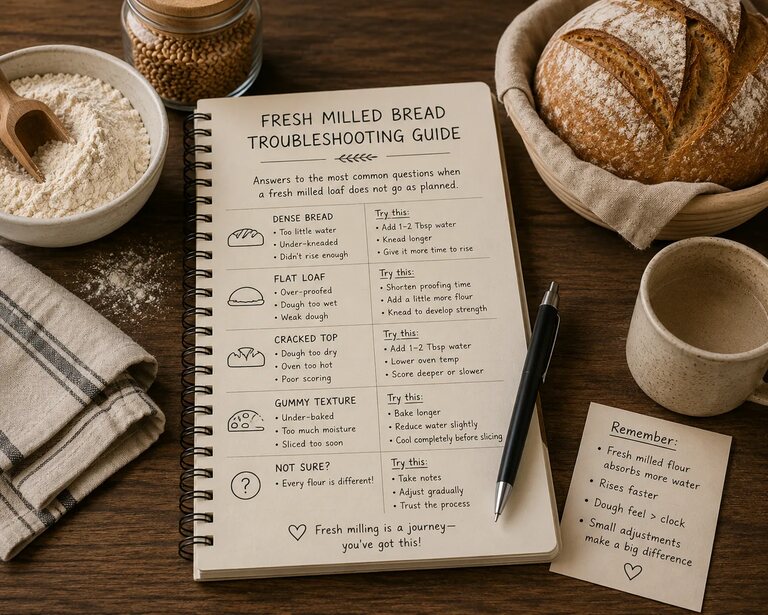 FRESH MILLED BREAD
TROUBLESHOOTING GUIDE
Answers to the most common questions when
a fresh milled loaf does not go as planned.
DENSE BREAD
• Too little water
• Under-kneaded
• Didn't rise enough
Try this:
• Add 1-2 Tbsp water
• Knead longer
• Give it more time to rise
FLAT LOAF
• Over-proofed
• Dough too wet
• Weak dough
Try this:
• Shorten proofing time
• Add a little more flour
• Knead to develop strength
CRACKED TOP
• Dough too dry
• Oven too hot
• Poor scoring
Try this:
• Add 1-2 Tbsp water
• Lower oven temp
• Score deeper or slower
GUMMY TEXTURE
• Under-baked
• Too much moisture
• Sliced too soon
Try this:
• Bake longer
• Reduce water slightly
• Cool completely before slicing
?
NOT SURE?
• Every flour is different!
Try this:
• Take notes
• Adjust gradually
• Trust the process
♡ Fresh milling is a journey—
you've got this!
Remember:
• Fresh milled flour
absorbs more water
• Rises faster
• Dough feel > clock
• Small adjustments
make a big difference
♡